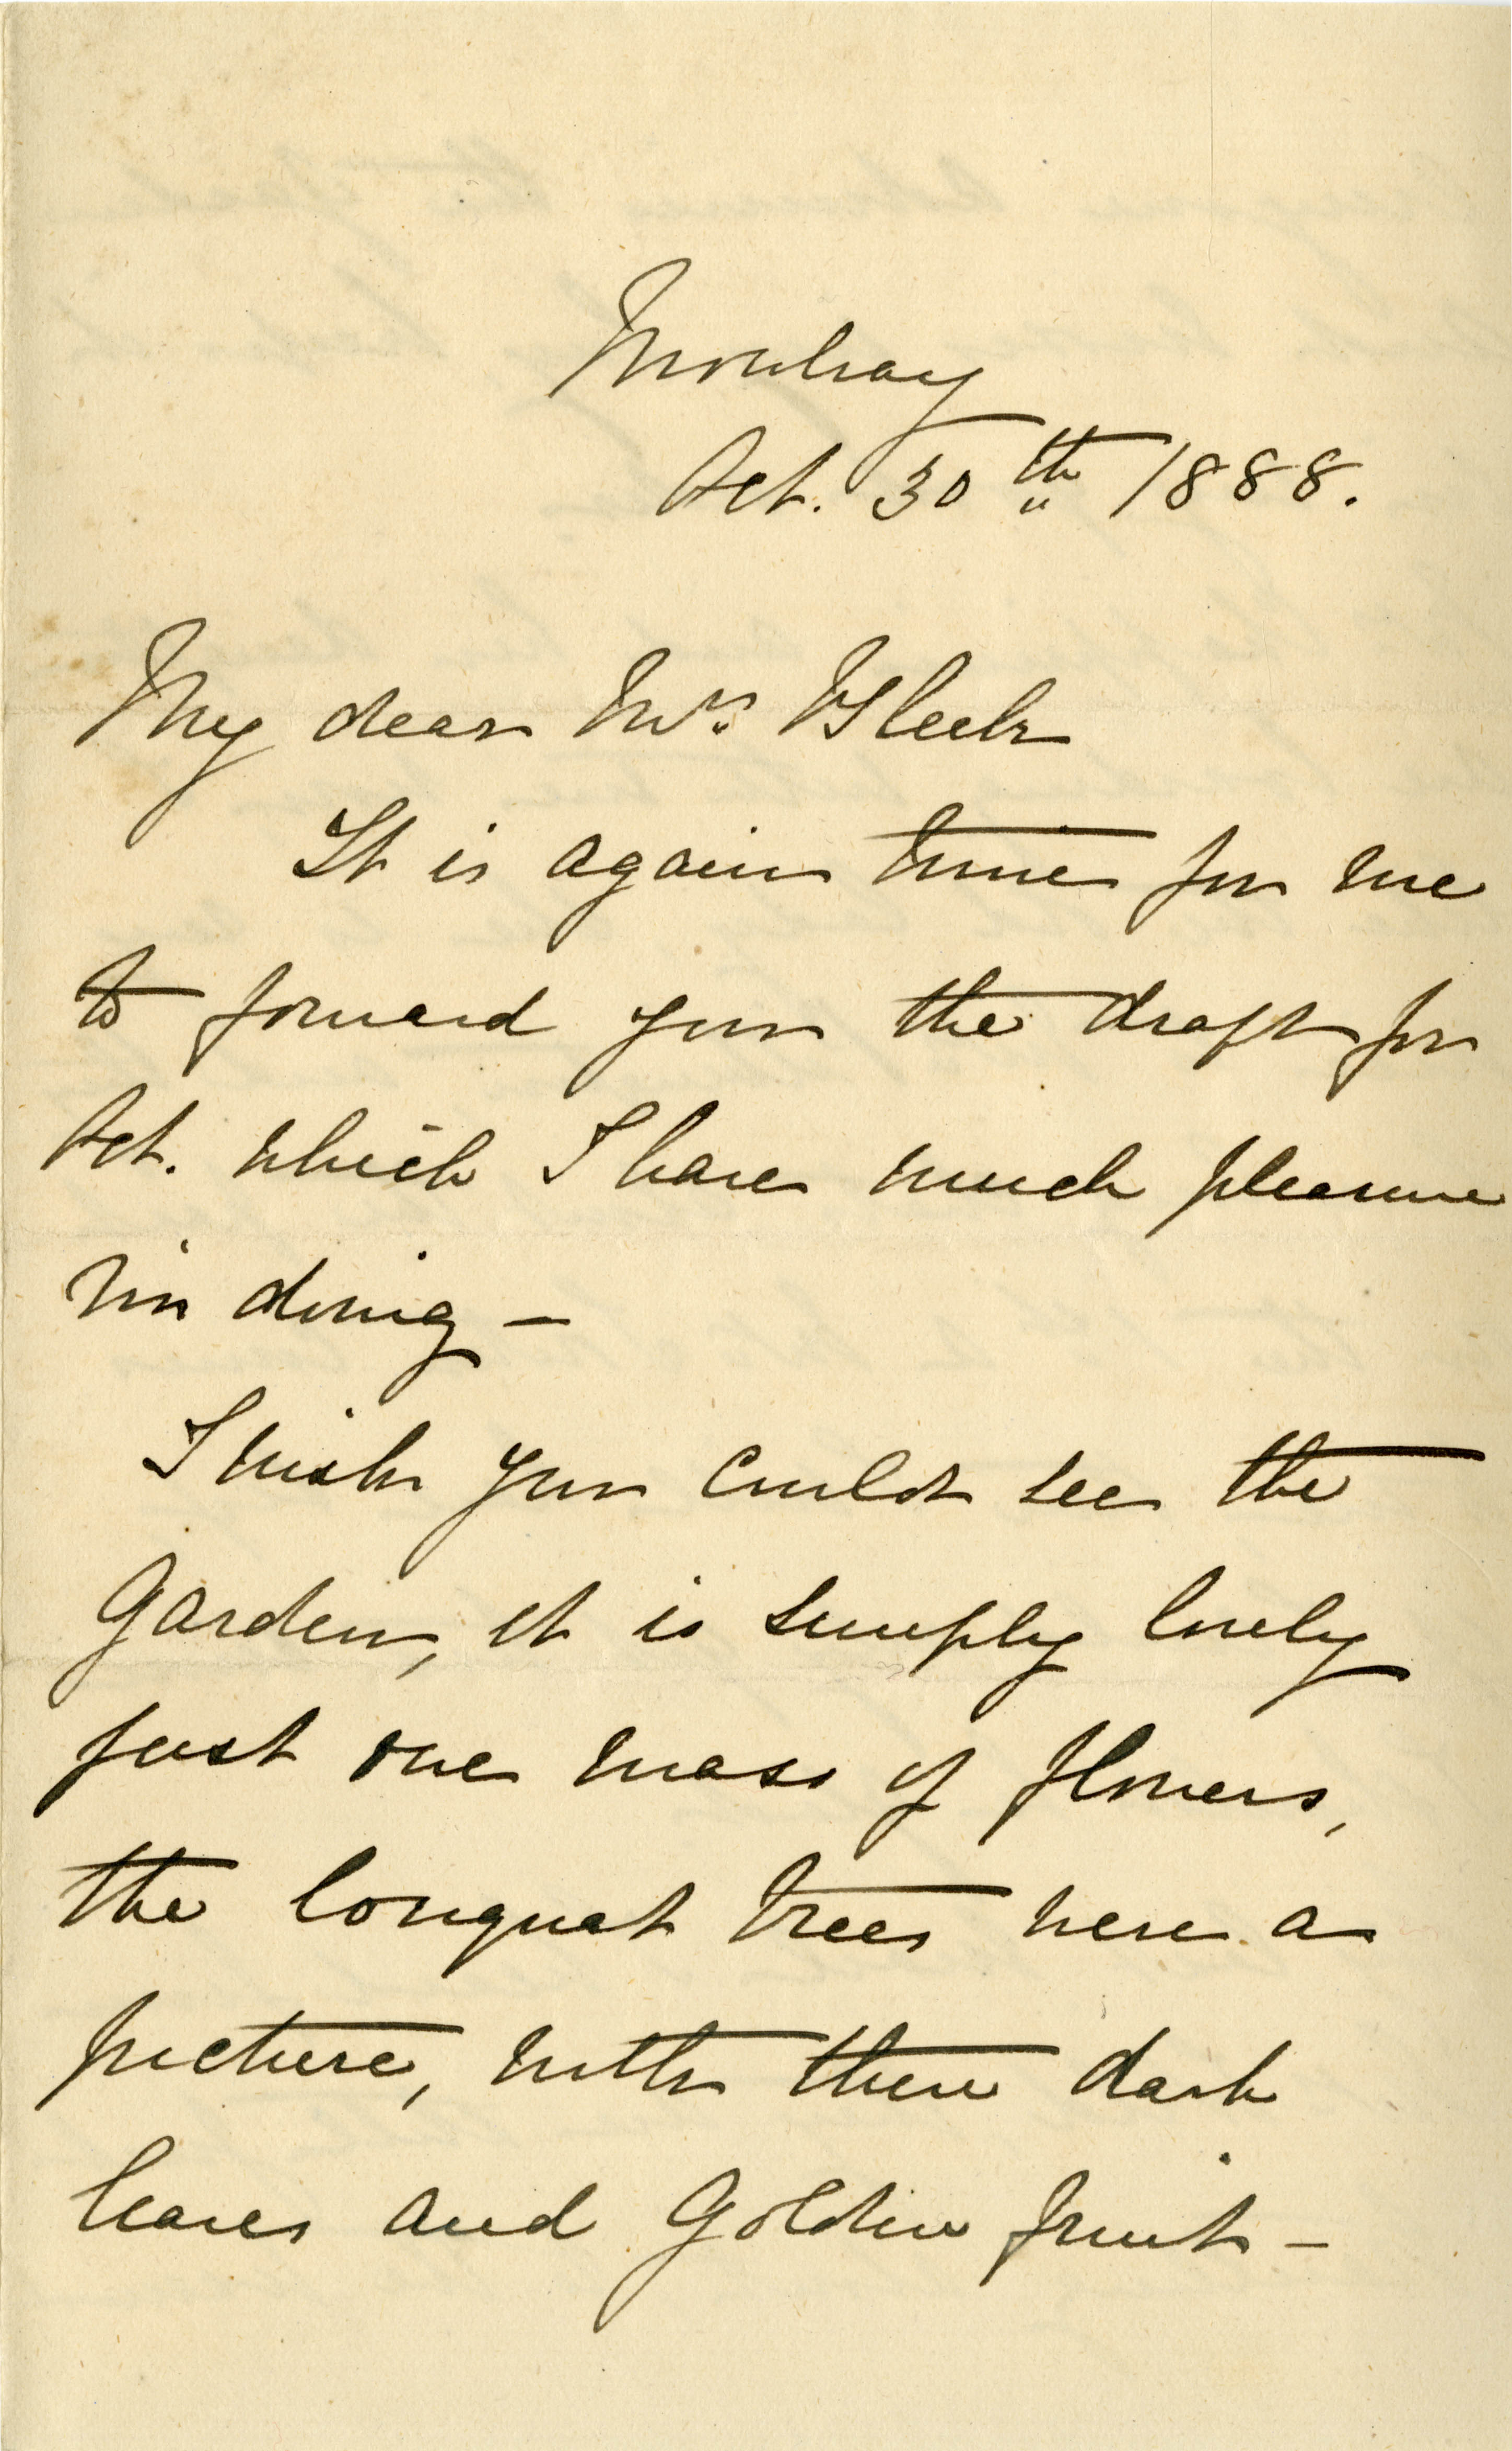 Mowbray
Oct. 30th 1888.
My dear Mrs Bleek
It is again time for me
to forward you the draft for
Oct. which I have much pleasure
in doing —
I wish you could see the
Garden, it is simply lovely
just one mass of flowers,
the loquat trees were a
picture, with their dark
leaves and golden fruit —